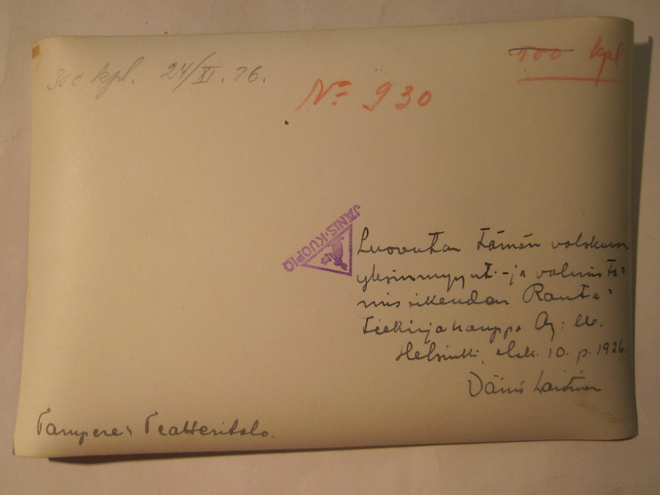 300 kpl. 24/XI.26.
500 kpl
No 930
JÄNIS-KUOPIO
Luovutan tämän valokuvan
yksinmyynti- ja valmista=
mis oikeuden Rauta=
tiekirjakauppa Oy:lle.
Helsinki, elok. 10. p. 1926
Väinö
Tampere, Teatteritalo.